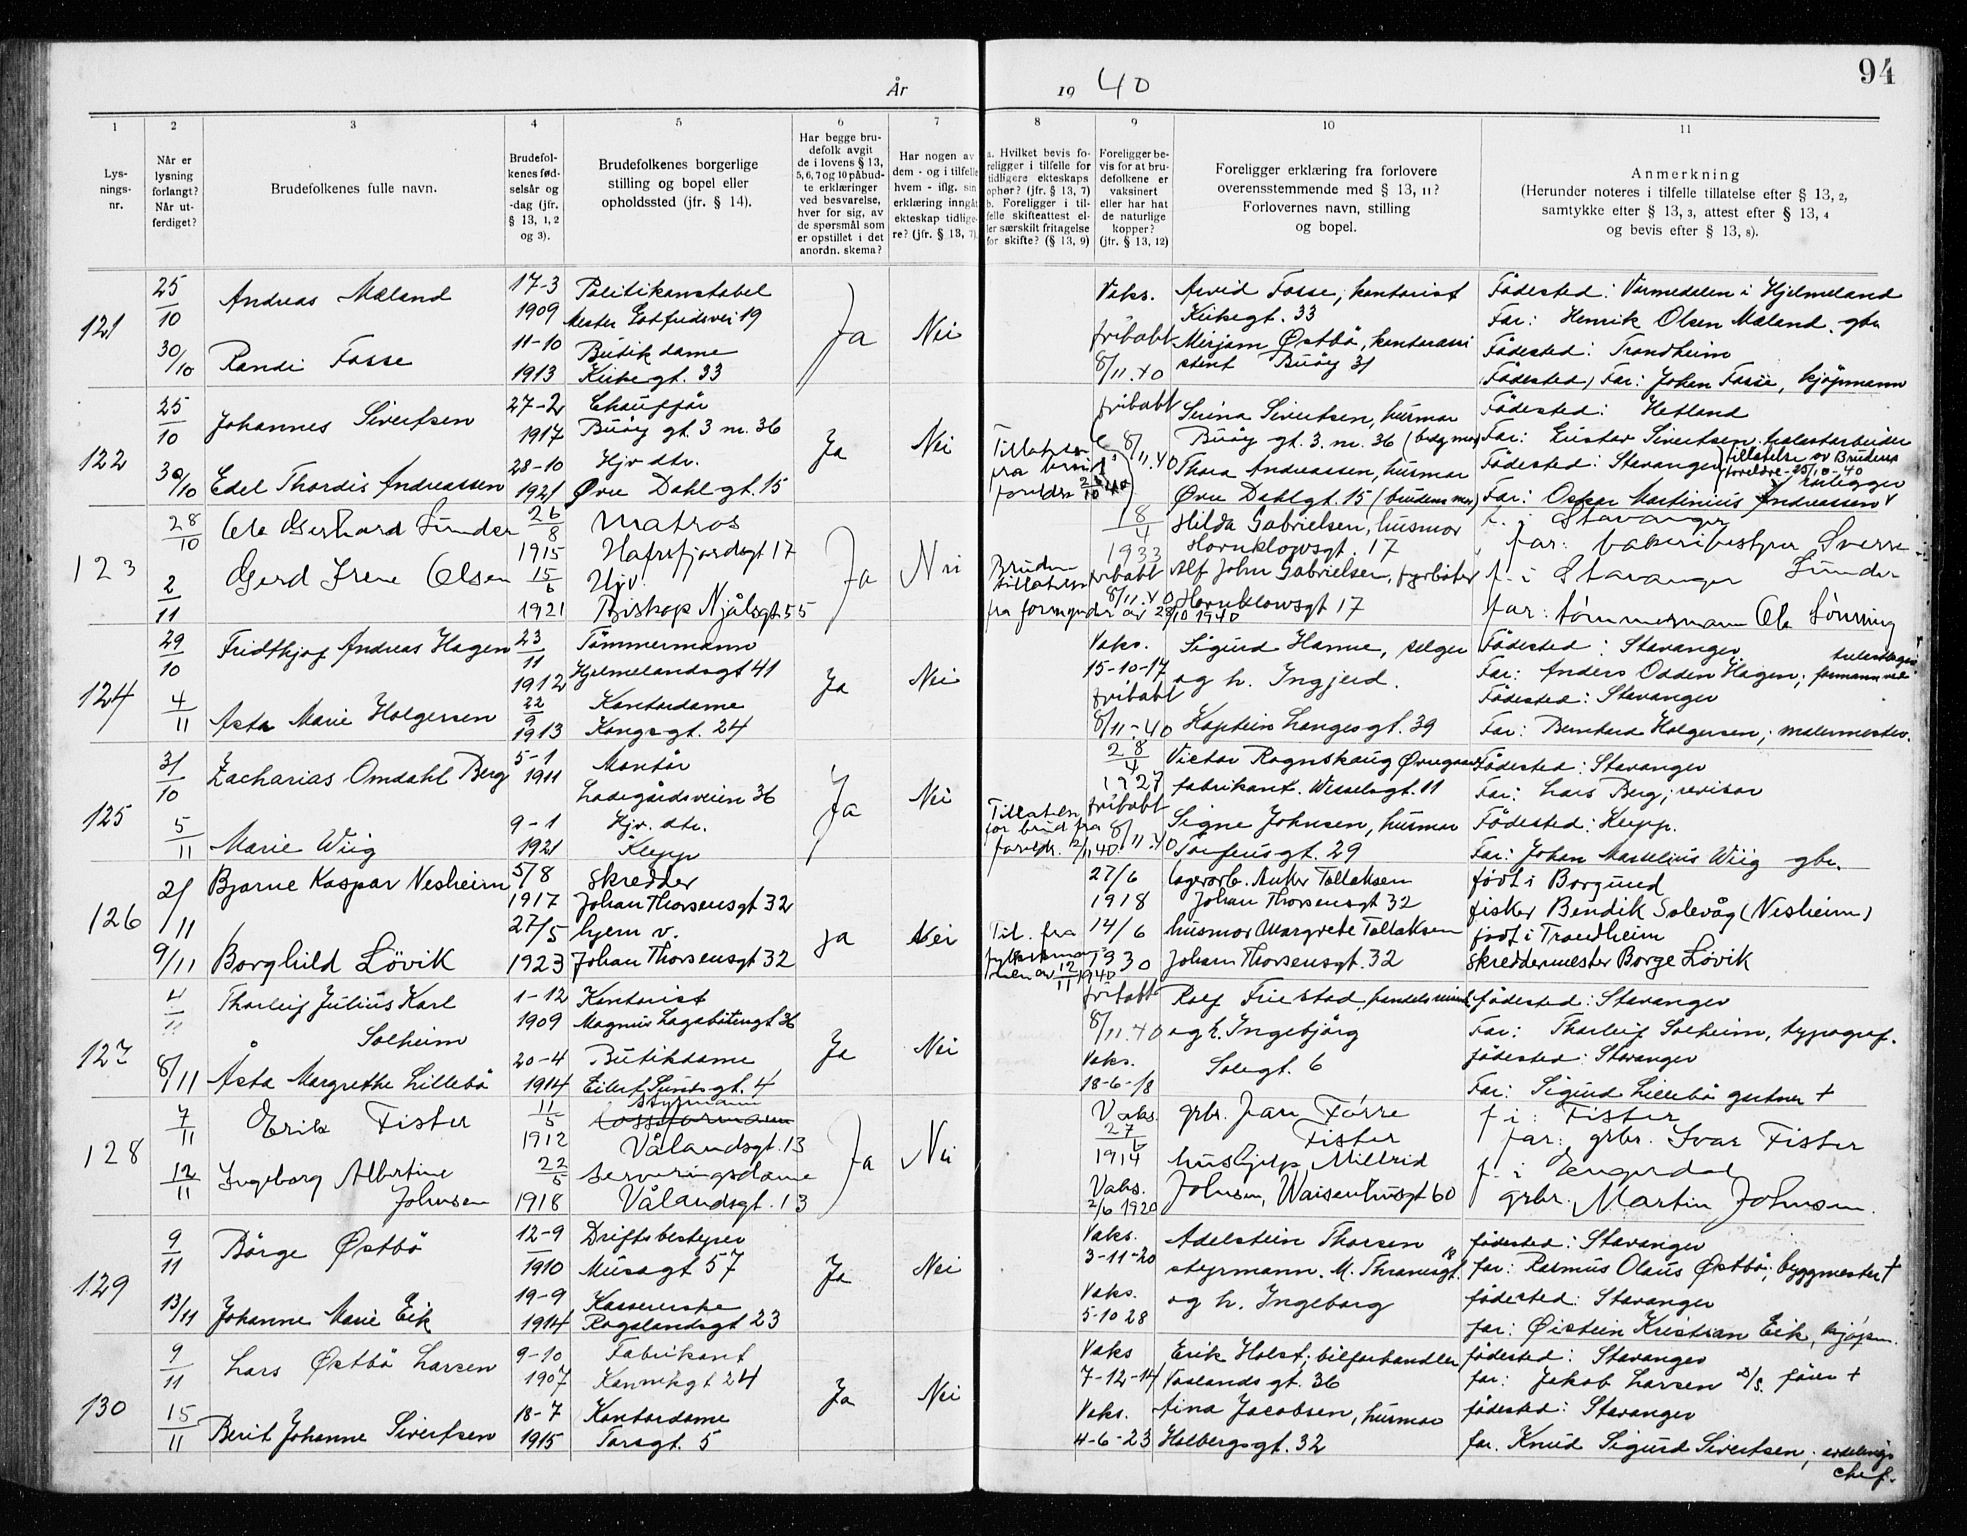 94
År 1940
1 2 3 4 5 6 7 8 9 10 11
Lysningsnr.
Når er lysning forlangt? Når utferdiget?
Brudefolkenes fulle navn.
Brudefolkenes fødselsår og -dag (jfr. § 13, 1, 2 og 3).
Brudefolkenes borgerlige stilling og bopel eller opholdssted (jfr. § 14).
Har begge brudefolk avgit de i lovens § 13, 5, 6, 7 og 10 påbudte erklæringer ved besvarelse, hver for sig, av de spørsmål som er opstillet i det anordn. skema?
Har nogen av dem - og i tilfelle hvem - iflg. sin erklæring inngått ekteskap tidligere? (jfr. § 13, 7).
a. Hvilket bevis foreligger i tilfelle for tidligere ekteskaps ophør? (jfr. § 13, 7)
b. Foreligger i tilfelle skifteattest eller særskilt fritagelse for skifte? (§ 13, 9)
Foreligger bevis for at brudefolkene er vaksinert eller har hat de naturlige kopper? (jfr. § 13, 12)
Foreligger erklæring fra forlovere overensstemmende med § 13, 11? Forlovernes navn, stilling og bopel.
Anmerkning
(Herunder noteres i tilfelle tillatelse efter § 13, 2, samtykke efter § 13, 3, attest efter § 13, 4 og bevis efter § 13, 8).
121
25/10 Andreas Mæland 17-3 1909 Politikonstabel Mester Gotfredsvei 19 Ja Nei Vaks. Arvid Fosse, kontorist Kirkegt. 33 Fødested: Vormedalen i Hjelmeland
Far: Henrik Olsen Mæland, gbr
30/10 Randi Fosse 11-10 1913 Butikdame Kirkegt. 33 fribobt 8/11.40 Mirjam Østbö, kontorassistent Buöy 31 Fødested: Trondheim
(Fødested) Far: Johan Fosse, kjøpmann
122
25/10 Johannes Sivertsen 27-2 1917 Chaufför Buöy gt. 3 nr. 36 Ja Nei fribobt 8/11.40 Serina Sivertsen, husmor Buöy gt. 3. nr. 36 (brdg mor) Fødested: Hetland
Far: Gustav Sivertsen,
30/10 Edel Thordis Andreassen 28-10 1921 Hjv. dtr. Øvre Dahlgt. 15 Tillatelse fra foreldre Thora Andreassen, husmor Øvre Dahlgt. 15 (brudens mor) Fødested: Stavanger (tillatelse av Brudens foreldre - 25/10-40 forligger
Far: Oskar Martinius Andreassen
123
28/10 Ole Gerhard Sunder 26/8 1915 Matros Hafrsfjordsgt 17 Ja Nei 8/4 1933 Hilda Gabrielsen, husmor Hornklowsgt. 17 f. i Stavanger
far: bakeribestyrer Sverre Sunder
2/11 Gerd Irene Olsen 15/6 1921 Hjv. Biskop Njålsgt. 55 Bruden tillatelse fra formynder av 28/10 1940 fribobt 8/11.40 Alf John Gabrielsen, fyrböter Hornklowsgt 17 f. i Stavanger
far: tömmermann Ole Lönning
124
29/10 Fridtkjof Andreas Hagen 23/11 1912 Tömmermann Hjelmelandsgt 41 Ja Nei Vaks. 15-10-17 Sigurd Hanne, selger og h. Ingjerd. Fødested: Stavanger
Far: Anders Odden Hagen;
4/11 Asta Marie Holgersen 22/9 1913 Kontordame Kongsgt. 24 fribobt 8/11.-40 Kaptein Langesgt. 39 Fødested: Stavanger
Far: Berntard Holgersen; malermester.
125
31/10 Zacharias Omdahl Berg 5-1 1911 Montör Ladegårdsveien 36 Ja Nei 28/4 1927 Victor Rognskaug fabrikant. Wesselsgt. 11 Fødested: Stavanger
Far: Lars Berg; revisor
5/11 Marie Wiig 9-1 1921 Hjv. dtr. Klepp Tillatelse for brud fra foreldr. 2/11 40 fribobt 8/11.40 Signe Johnsen, husmor Torfeusgt. 29 Fødested: Klepp.
Far: Johan Martelius Wiig gbr.
126
2/11 Bjarne Kaspar Nesheim 5/8 1917 skredder Johan Thorsensgt 32 ja Nei 27/6 1918 lagerarb. Anker Tollaksen Johan Thorsensgt 32 født i Borgund
fisker Bendik Solevåg (Nesheim)
9/11 Borghild Lövik 27/5 1923 hjem v. Johan Thorsensgt 32 Til. fra fylkesmannen av 12/11 1940 14/6 1930 husmor Margrete Tollaksen Johan Thorsensgt. 32 født i Trondheim
skreddermester Borge Lövik
127
4/11 Thorleif Julius Karl Solheim 1-12 1909 Kontorist Magnus Lagabötersgt 36 Ja Nei fribobt 8/11.40 Rolf Friestad, og h. Ingebjörg fødested: Stavanger
Far: Thorleif Solheim, typograf.
8/11 Åsta Margrethe Lillebö 20-4 1914 Butikdame Eilert Sundsgt. 4 Vaks. 18-6-18 Solagt. 6 fødested: Stavanger
Far: Sigurd Lillebö gartner †
128
7/11 Erik Fister 11/5 1912 styrmann Vålandsgt. 13 Ja Nei Vaks. 1914 grbr. Jan Förre Fister f i: Fister
far: grbr. Ivar Fister
12/11 Ingeborg Albertine Johnsen 22/5 1918 serveringsdame Vålandsgt. 13 Vaks. 2/6 1920 hushjelp Milltrid Johnsen, Waisenhusgt 60 f. i Engerdal
grbr. Martin Johnsen.
129
9/11 Börge Østbö 12-9 1910 Driftsbestyrer Musegt 57 Ja Nei Vaks. 3-11-20 Adelstein Thorsen styrmann. M. Thranesgt. 18 fødested: Stavanger
far: Rasmus Olaus Østbö; byggmester †
13/11 Johanne Marie Eik 19-9 1914 Kassererske Rogalandsgt 23 Vaks. 5-10 28 og h. Ingeborg fødested: Stavanger
far: Øistein Kristian Eik, kjöpm.
130
9/11 Lars Østbö Larsen 9-10 1907 Fabrikant Kannikgt 24 Ja Nei Vaks 7-12-14 Erik Holst; bilforhandler Vaslandsgt. 36 fødested: Stavanger
far: Jakob Larsen D/S. förer †
15/11 Berit Johanne Sivertsen 18-7 1915 Kontordame Torsgt. 5 Vaks. 4-6-23 Aina Jacobsen, husmor Holbergsgt. 32 fødested: Stavanger
far. Knud Sigurd Sivertsen; avdelings chef.